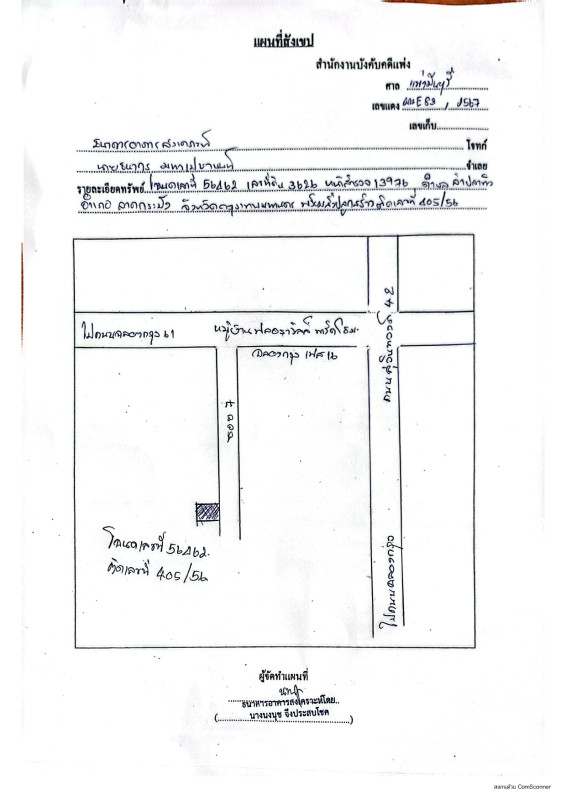 แผนที่สังเขป
สำนักงานบังคับคดีแพ่ง
ศาล แพ่งมีนบุรี
เลขแดง ผบE89 / 2567
เลขเก็บ
ธนาคารอาคารสงเคราะห์ โจทก์
นายธนากร จำเลย
รายละเอียดทรัพย์ โฉนดเลขที่ 56462 เลขที่ดิน 3626 หน้าสำรวจ 13976 ตำบล ลำปลาทิว
อำเภอ ลาดกระบัง จังหวัดกรุงเทพมหานคร พร้อมสิ่งปลูกสร้างติดเลขที่ 405/56
ไปถนนฉลองกรุง 61
หมู่บ้าน
ฉลองกรุง เฟส 16
ซอย 7
ถนนคุ้มเกล้า 42
ไปถนน
โฉนดเลขที่ 56462
ติดเลขที่ 405/56
ผู้จัดทำแผนที่
ธนาคารอาคารสงเคราะห์โดย
(นางนงนุช จึงประสบโชค)
สแกนด้วย CamScanner